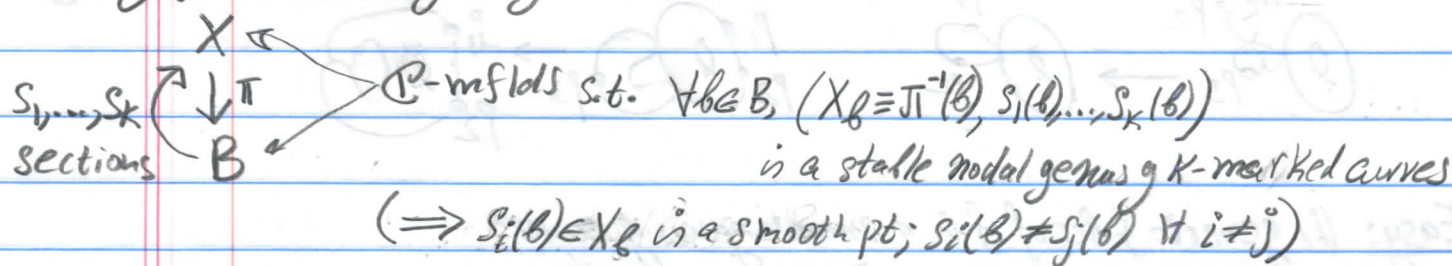 X
S₁,...,Sₖ ↓π ℂ-mflds s.t. ∀b∈B, (X_b≡π⁻¹(b), s₁(b),...,sₖ(b))
sections B is a stable nodal genus g k-marked curves
(⟹ sᵢ(b)∈X_b is a smooth pt; sᵢ(b)≠sⱼ(b) ∀ i≠j)